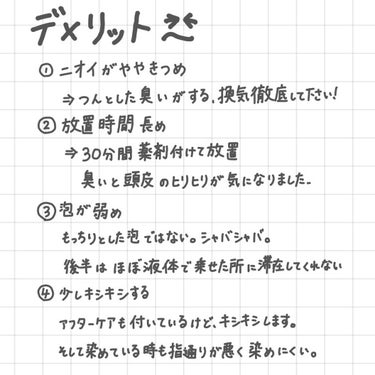 デメリット
① ニオイがややきつめ
⇒つんとした臭いがする。換気徹底して下さい!
② 放置時間 長め
⇒30分間 薬剤付けて放置
臭いと頭皮のヒリヒリが気になりました。
③ 泡が弱め
もっちりとした泡ではない。シャバシャバ。
後半は ほぼ液体で乗せた所に滞在してくれない
④ 少しキシキシする
アフターケアも付いているけど、キシキシします。
そして染めている時も指通りが悪く染めにくい。